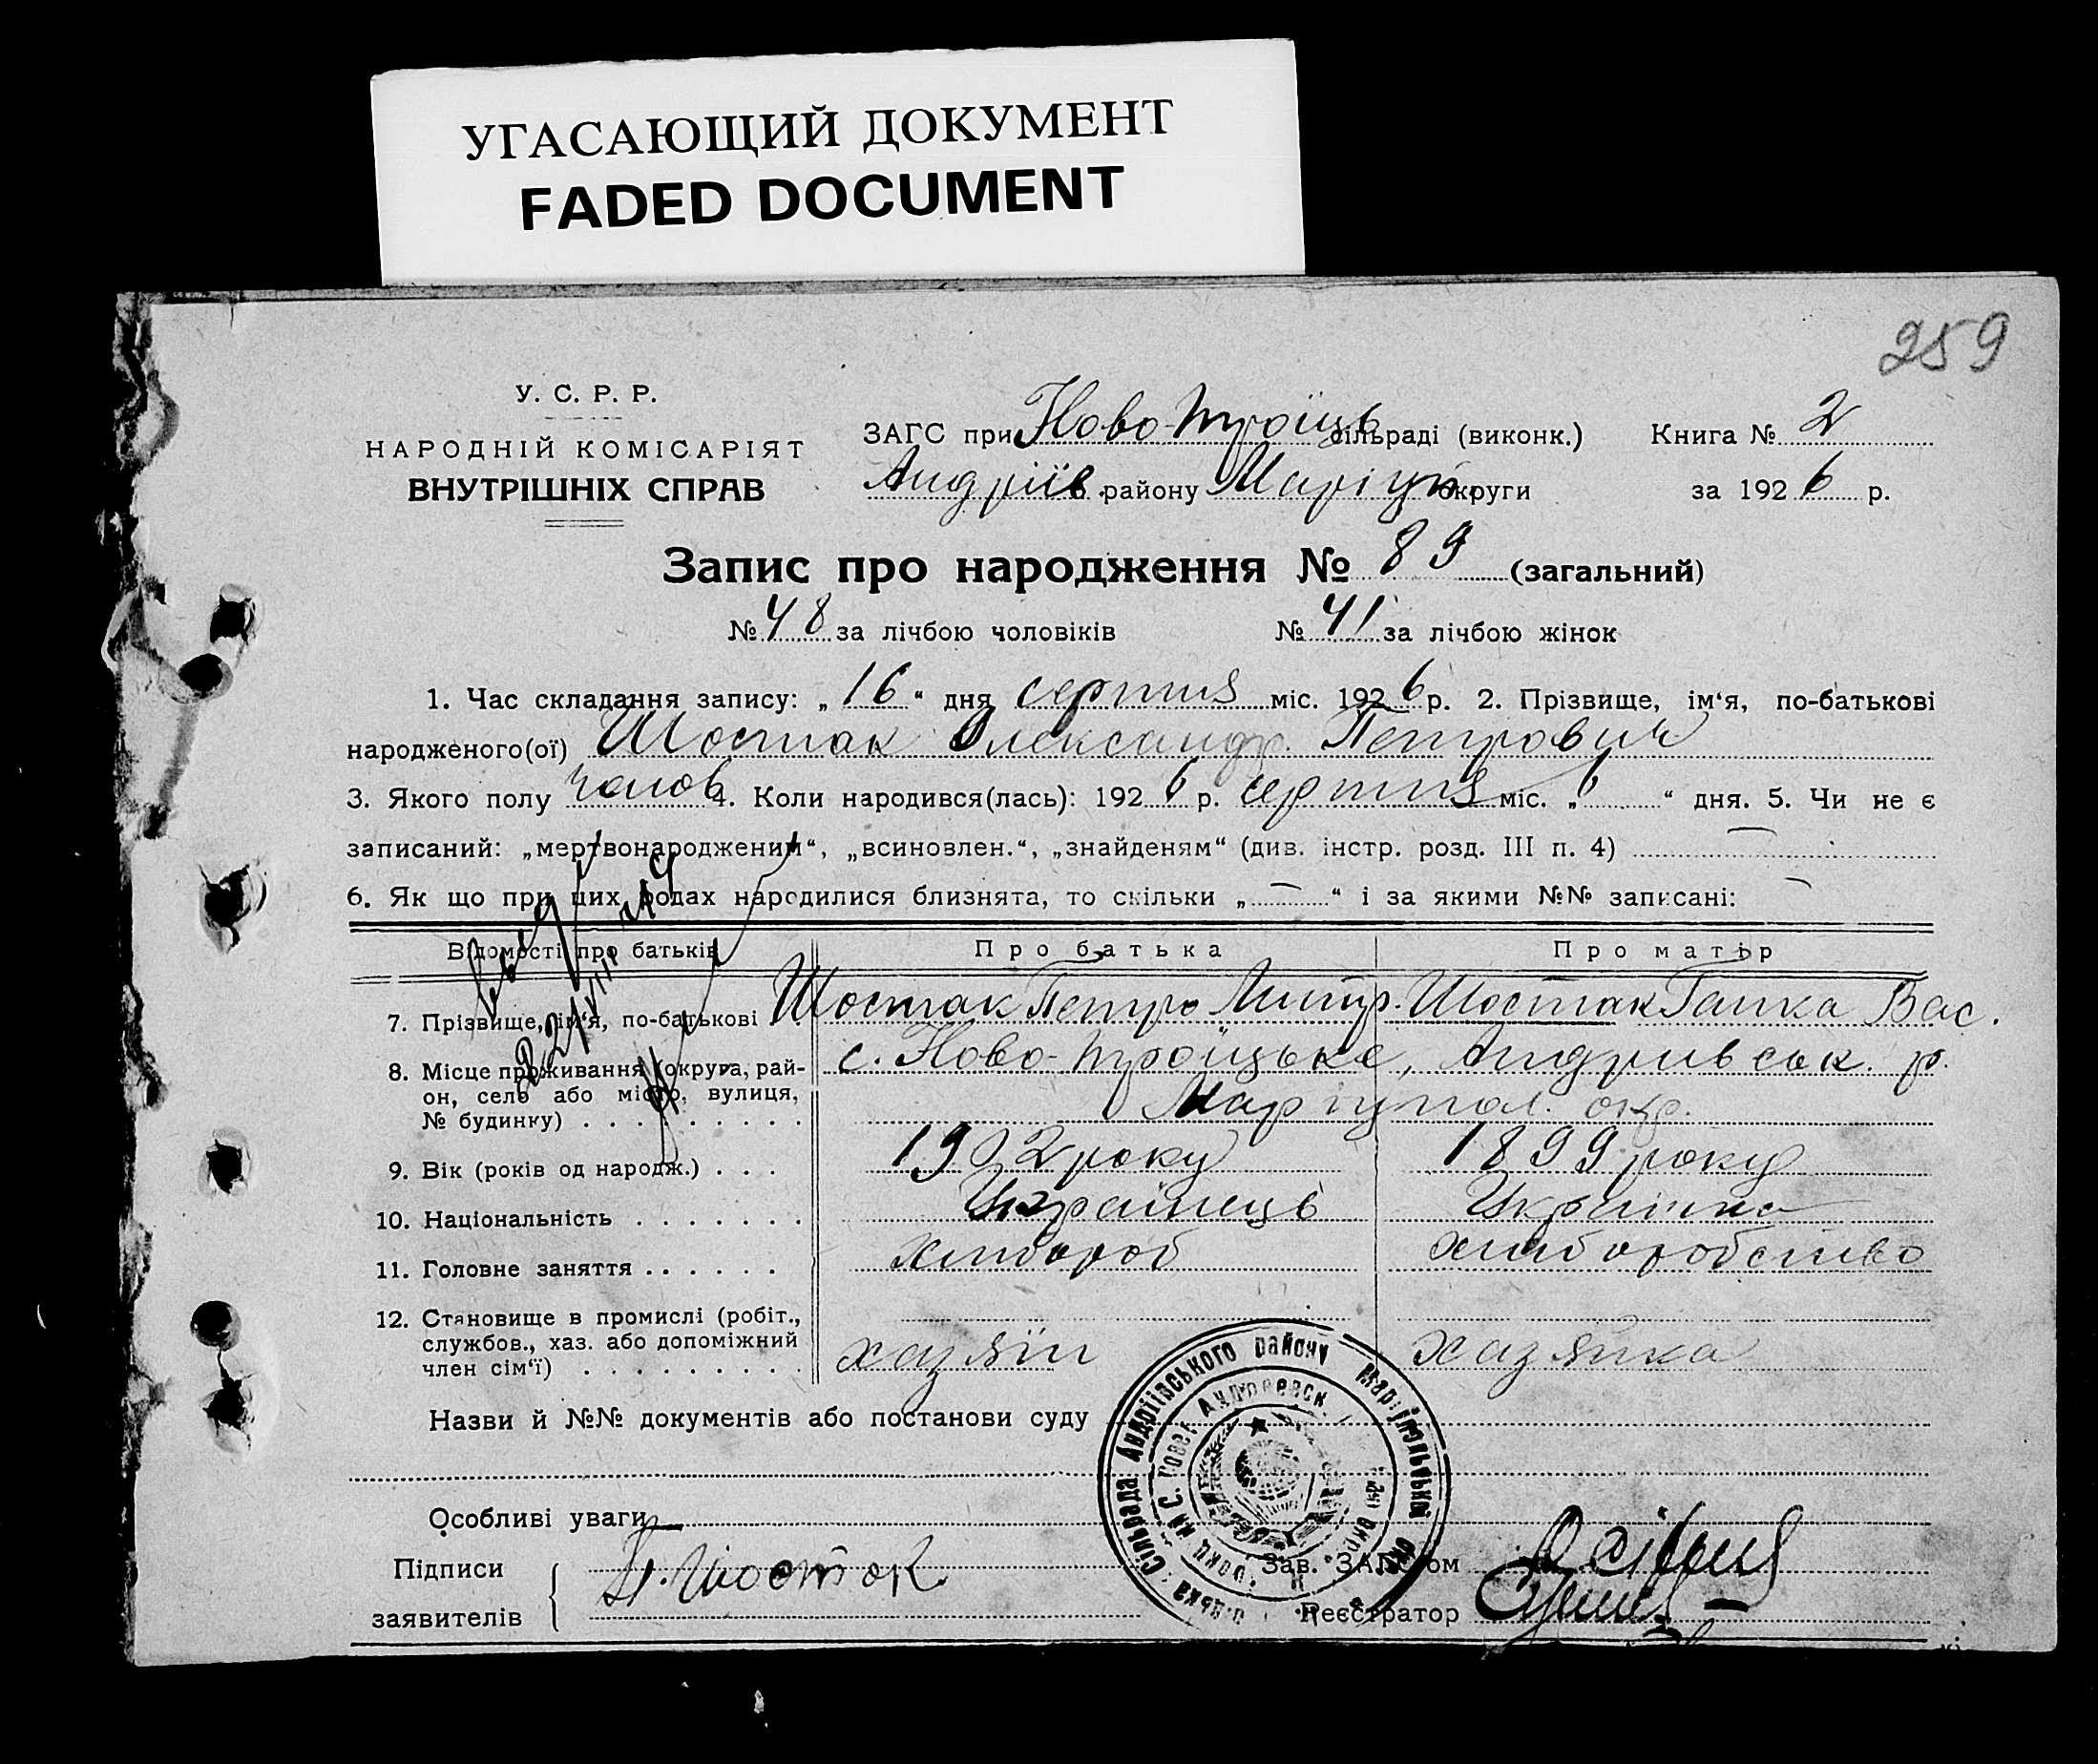 УГАСАЮЩИЙ ДОКУМЕНТ
FADED DOCUMENT
259
У. С. Р. Р.
НАРОДНІЙ КОМІСАРІЯТ
ВНУТРІШНІХ СПРАВ
ЗАГС при Ново-Троїць сільраді (виконк.) Книга № 2
Андріїв. району Маріуп. округи за 1926 р.
Запис про народження № 89 (загальний)
№ 48 за лічбою чоловіків № 41 за лічбою жінок
1. Час складання запису: „16“ дня серпня міс. 1926 р. 2. Прізвище, ім‘я, по-батькові
народженого(ої) Шостак Олександр. Петрович
3. Якого полу чолов. 4. Коли народився(лась): 1926 р. серпня міс. „6“ дня. 5. Чи не є
записаний: „мертвонародженим“, „всиновлен.“, „знайденям“ (див. інстр. розд. III п. 4) —
6. Як що при цих родах народилися близнята, то скільки „—“ і за якими №№ записані: —
Відомості про батьків Про батька Про матір
7. Прізвище, ім‘я, по-батькові Шостак Петро Митр. Шостак Ганка Вас.
8. Місце проживання (округа, рай-
он, село або місто, вулиця,
№ будинку) с. Ново-Троїцьке, Андривськ. р.
Маріупол. окр.
9. Вік (років од народж.) 1902 року 1899 року
10. Національність Українець Українка
11. Головне заняття хлібороб хліборобство
12. Становище в промислі (робіт.,
службов., хаз. або допоміжний
член сім‘ї) хазяїн хазяйка
Назви й №№ документів або постанови суду
Особливі уваги —
Підписи
заявителів
П. Шостак
Зав. ЗАГС‘ом
Реєстратор
Сільрада Андріївського району Маріюпольської